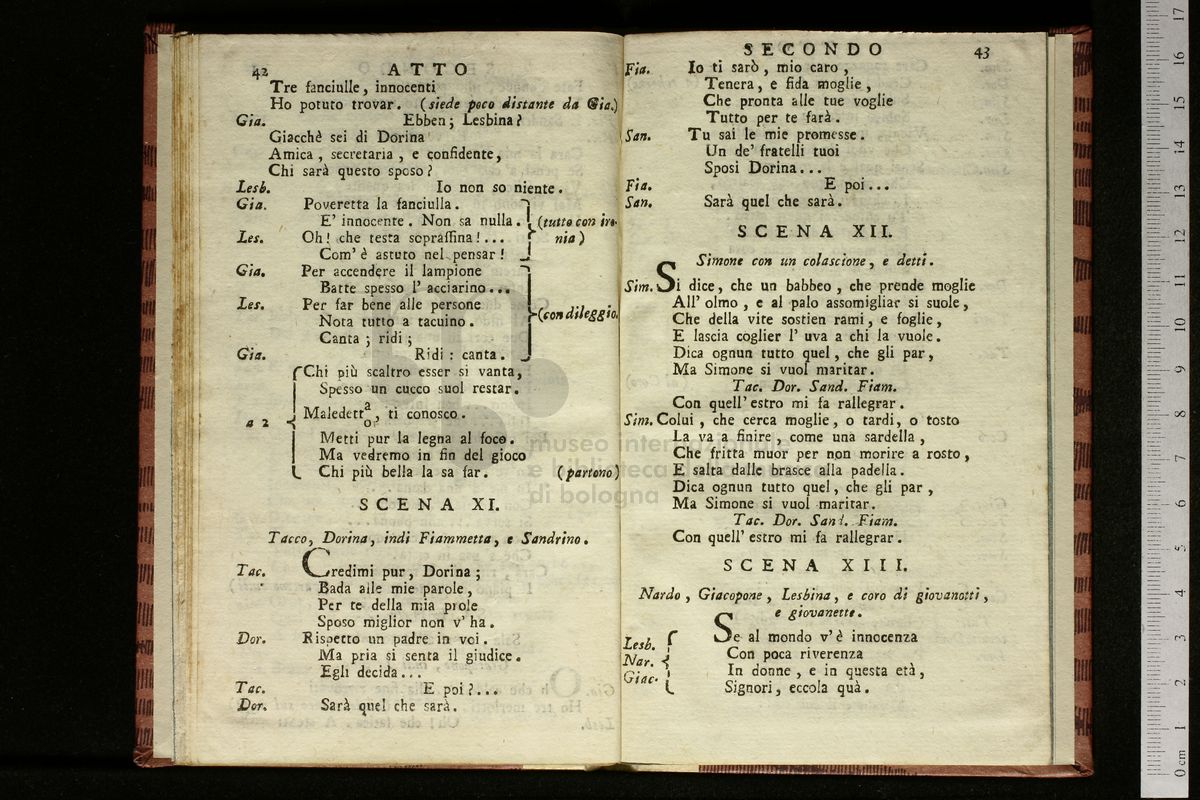 42 ATTO
Tre fanciulle, innocenti
Ho potuto trovar. (siede poco distante da Gia.)
Gia. Ebben; Lesbina?
Giacchè sei di Dorina
Amica, secretaria, e confidente,
Chi sarà questo sposo?
Lesb. Io non so niente.
Gia. Poveretta la fanciulla.
E' innocente. Non sa nulla. (tutto con iro-
Les. Oh! che testa sopraffina!... nia)
Com' è astuto nel pensar!
Gia. Per accendere il lampione
Batte spesso l' acciarino...
Les. Per far bene alle persone
Nota tutto a tacuino. (con dileggio.
Canta; ridi;
Gia. Ridi: canta.
Chi più scaltro esser si vanta,
Spesso un cucco suol restar.
a 2 Maledetta/o, ti conosco.
Metti pur la legna al foco.
Ma vedremo in fin del gioco
Chi più bella la sa far. (partono)
SCENA XI.
Tacco, Dorina, indi Fiammetta, e Sandrino.
Tac. Credimi pur, Dorina;
Bada alle mie parole,
Per te della mia prole
Sposo miglior non v' ha.
Dor. Rispetto un padre in voi.
Ma pria si senta il giudice.
Egli decida...
Tac. E poi?...
Dor. Sarà quel che sarà.
SECONDO 43
Fia. Io ti sarò, mio caro,
Tenera, e fida moglie,
Che pronta alle tue voglie
Tutto per te farà.
San. Tu sai le mie promesse.
Un de' fratelli tuoi
Sposi Dorina...
Fia. E poi...
San. Sarà quel che sarà.
SCENA XII.
Simone con un colascione, e detti.
Sim. Si dice, che un babbeo, che prende moglie
All' olmo, e al palo assomigliar si suole,
Che della vite sostien rami, e foglie,
E lascia coglier l' uva a chi la vuole.
Dica ognun tutto quel, che gli par,
Ma Simone si vuol maritar.
Tac. Dor. Sand. Fiam.
Con quell' estro mi fa rallegrar.
Sim. Colui, che cerca moglie, o tardi, o tosto
La va a finire, come una sardella,
Che fritta muor per non morire a rosto,
E salta dalle brasce alla padella.
Dica ognun tutto quel, che gli par,
Ma Simone si vuol maritar.
Tac. Dor. Sand. Fiam.
Con quell' estro mi fa rallegrar.
SCENA XIII.
Nardo, Giacopone, Lesbina, e coro di giovanotti,
e giovanette.
Lesb. Se al mondo v' è innocenza
Nar. Con poca riverenza
Giac. In donne, e in questa età,
Signori, eccola quà.
museo internazionale
e biblioteca della musica
di bologna
0 cm 1 2 3 4 5 6 7 8 9 10 11 12 13 14 15 16 17